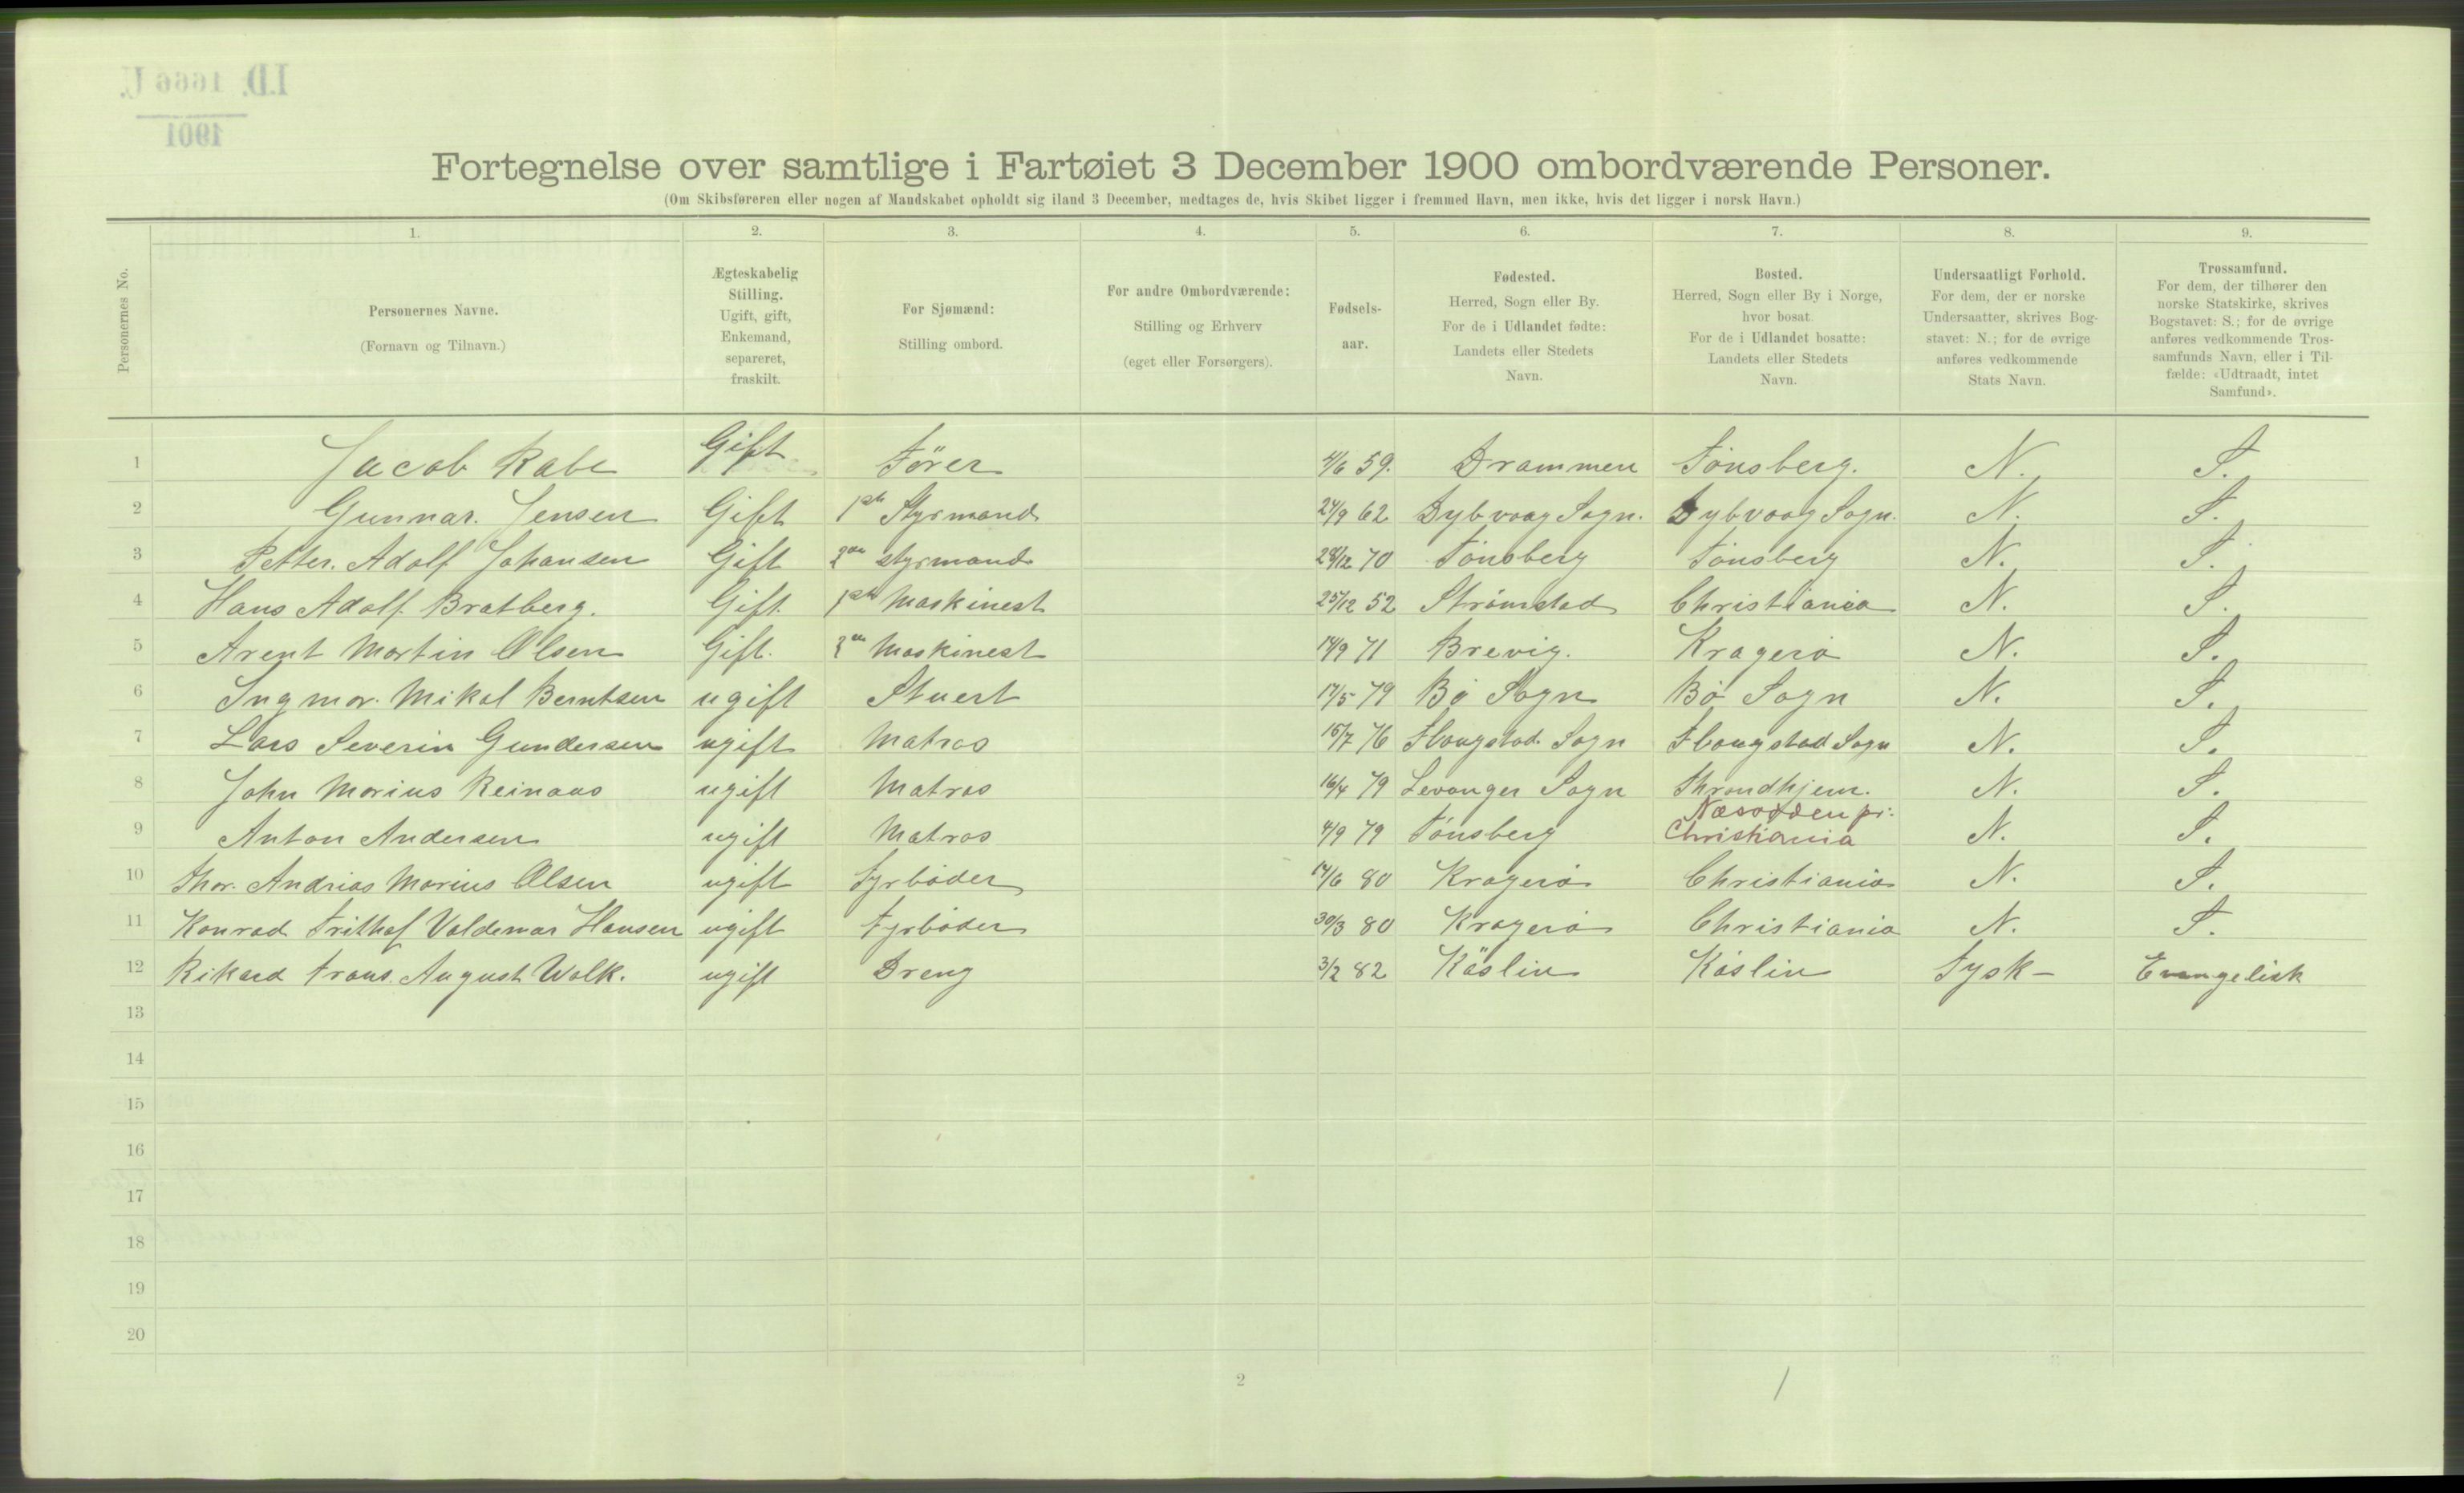 I.D. 1666 U.
1901
Fortegnelse over samtlige i Fartøiet 3 December 1900 ombordværende Personer.
(Om Skibsføreren eller nogen af Mandskabet opholdt sig iland 3 December, medtages de, hvis Skibet ligger i fremmed Havn, men ikke, hvis det ligger i norsk Havn.)
Personernes No.
1.
Personernes Navne.
(Fornavn og Tilnavn.)
2.
Ægteskabelig
Stilling.
Ugift, gift,
Enkemand,
separeret,
fraskilt.
3.
For Sjømænd:
Stilling ombord.
4.
For andre Ombordværende:
Stilling og Erhverv
(eget eller Forsørgers).
5.
Fødsels-
aar.
6.
Fødested.
Herred, Sogn eller By.
For de i Udlandet fødte:
Landets eller Stedets
Navn.
7.
Bosted.
Herred, Sogn eller By i Norge,
hvor bosat.
For de i Udlandet bosatte:
Landets eller Stedets
Navn.
8.
Undersaatligt Forhold.
For dem, der er norske
Undersaatter, skrives Bog-
stavet: N.; for de øvrige
anføres vedkommende
Stats Navn.
9.
Trossamfund.
For dem, der tilhører den
norske Statskirke, skrives
Bogstavet: S.; for de øvrige
anføres vedkommende Tros-
samfunds Navn, eller i Til-
fælde: «Udtraadt, intet
Samfund».
1 Jacob Rabe Gift Förer 4/6 59. Drammen Tönsberg. N. S.
2 Gunnar. Jensen Gift 1ste Styrmand 24/9 62 Dybvaag Sogn. Dybvaag Sogn. N. S.
3 Petter. Adolf Johansen Gift 2den Styrmand 28/12 70 Tönsberg Tönsberg N. S.
4 Hans Adolf Bratberg. Gift 1ste Maskinest 25/12 52 Strömstad Christiania N. S.
5 Arent Martin Olsen Gift. 2den Maskinest 14/9 71 Brevig. Kragerö N. S.
6 Ingmar. Mikal Berntsen ugift Stuert 17/5 79 Bö Sogn Bö Sogn N. S.
7 Lars Severin Gundersen ugift Matros 15/7 76 Sogn Sogn N. S.
8 John Marius Reinaas ugift Matros 16/4 79 Levanger Sogn Throndhjem. N. S.
9 Anton Andersen ugift Matros 4/9 79 Tönsberg Næsodden pr. Christiania N. S.
10 Thor. Andrias Marius Olsen ugift Fyrböder 17/6 80 Kragerö Christiania N. S.
11 Konrad Frithof Valdemar Hansen ugift Fyrböder 30/3 80 Kragerö Christiania N. S.
12 Rikard Frans. August Wolk. ugift Dreng 3/2 82 Köslin Köslin Tysk- Evangelisk
13
14
15
16
17
18
19
20
2